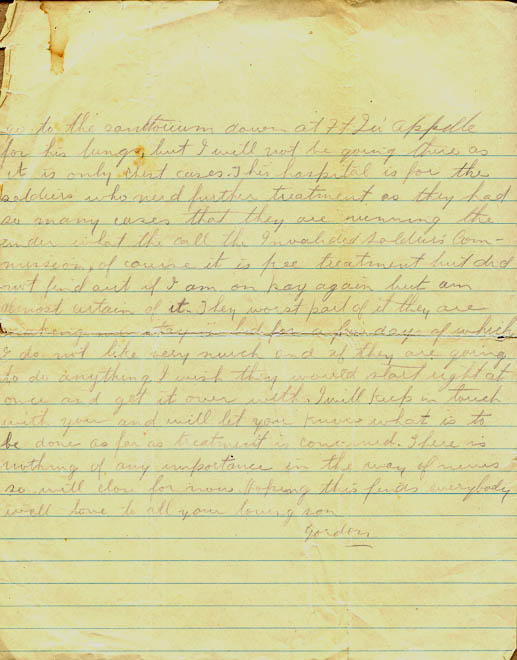 go to the sanitorium down at Ft Qu'Appelle
for his lungs, but I will not be going there as
it is only chest cases. This hospital is for the
soldiers who need further treatment as they had
so many cases that they are running this
under what the call the Invalided Soldiers Com-
mission, of course it is free treatment but did
not find out if I am on pay again but am
almost certain of it. They worst part of it they are
making me stay in bed for a few days of which
I do not like very much and if they are going
to do anything I wish they would start right at
once and get it over with. I will keep in touch
with you and will let you know what is to
be done as far as treatment is concerned. There is
nothing of any importance in the way of news
so will close for now Hoping this finds everybody
well love to all your loving son
Gordon